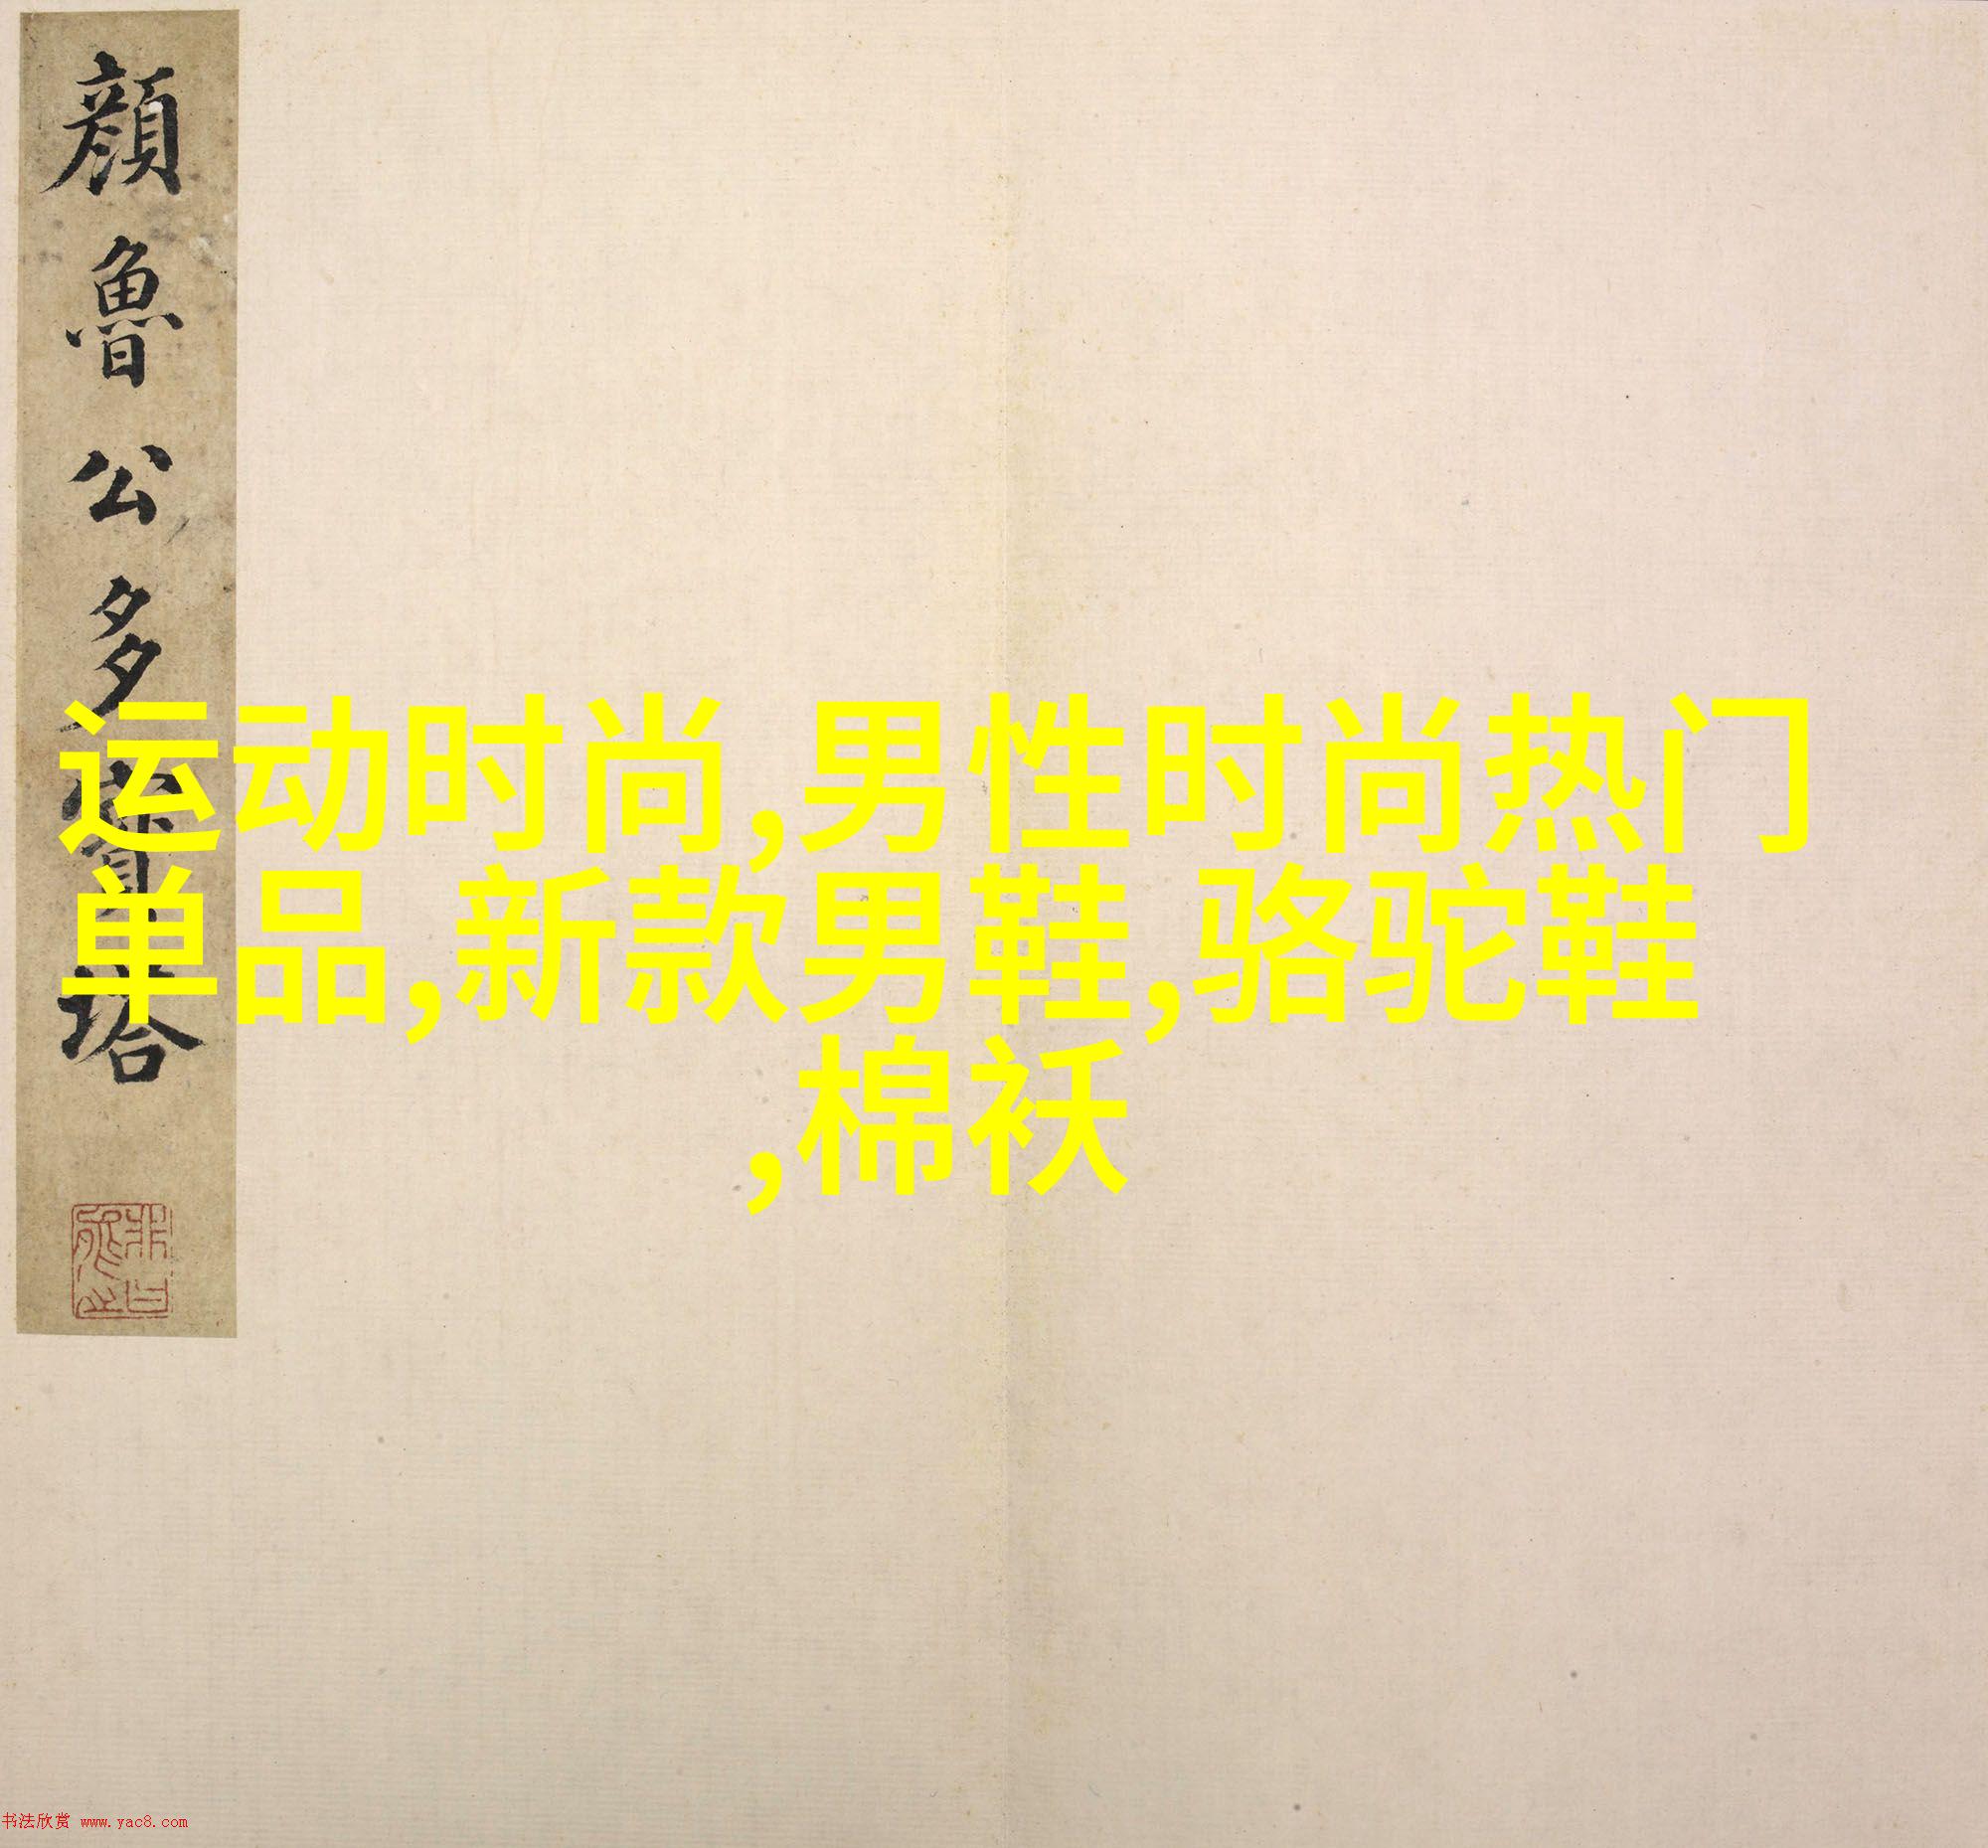 顔魯公多寶塔
运动时尚,男性时尚热门
单品,新款男鞋,骆驼鞋
,棉袄
书法欣赏 www.yac8.com